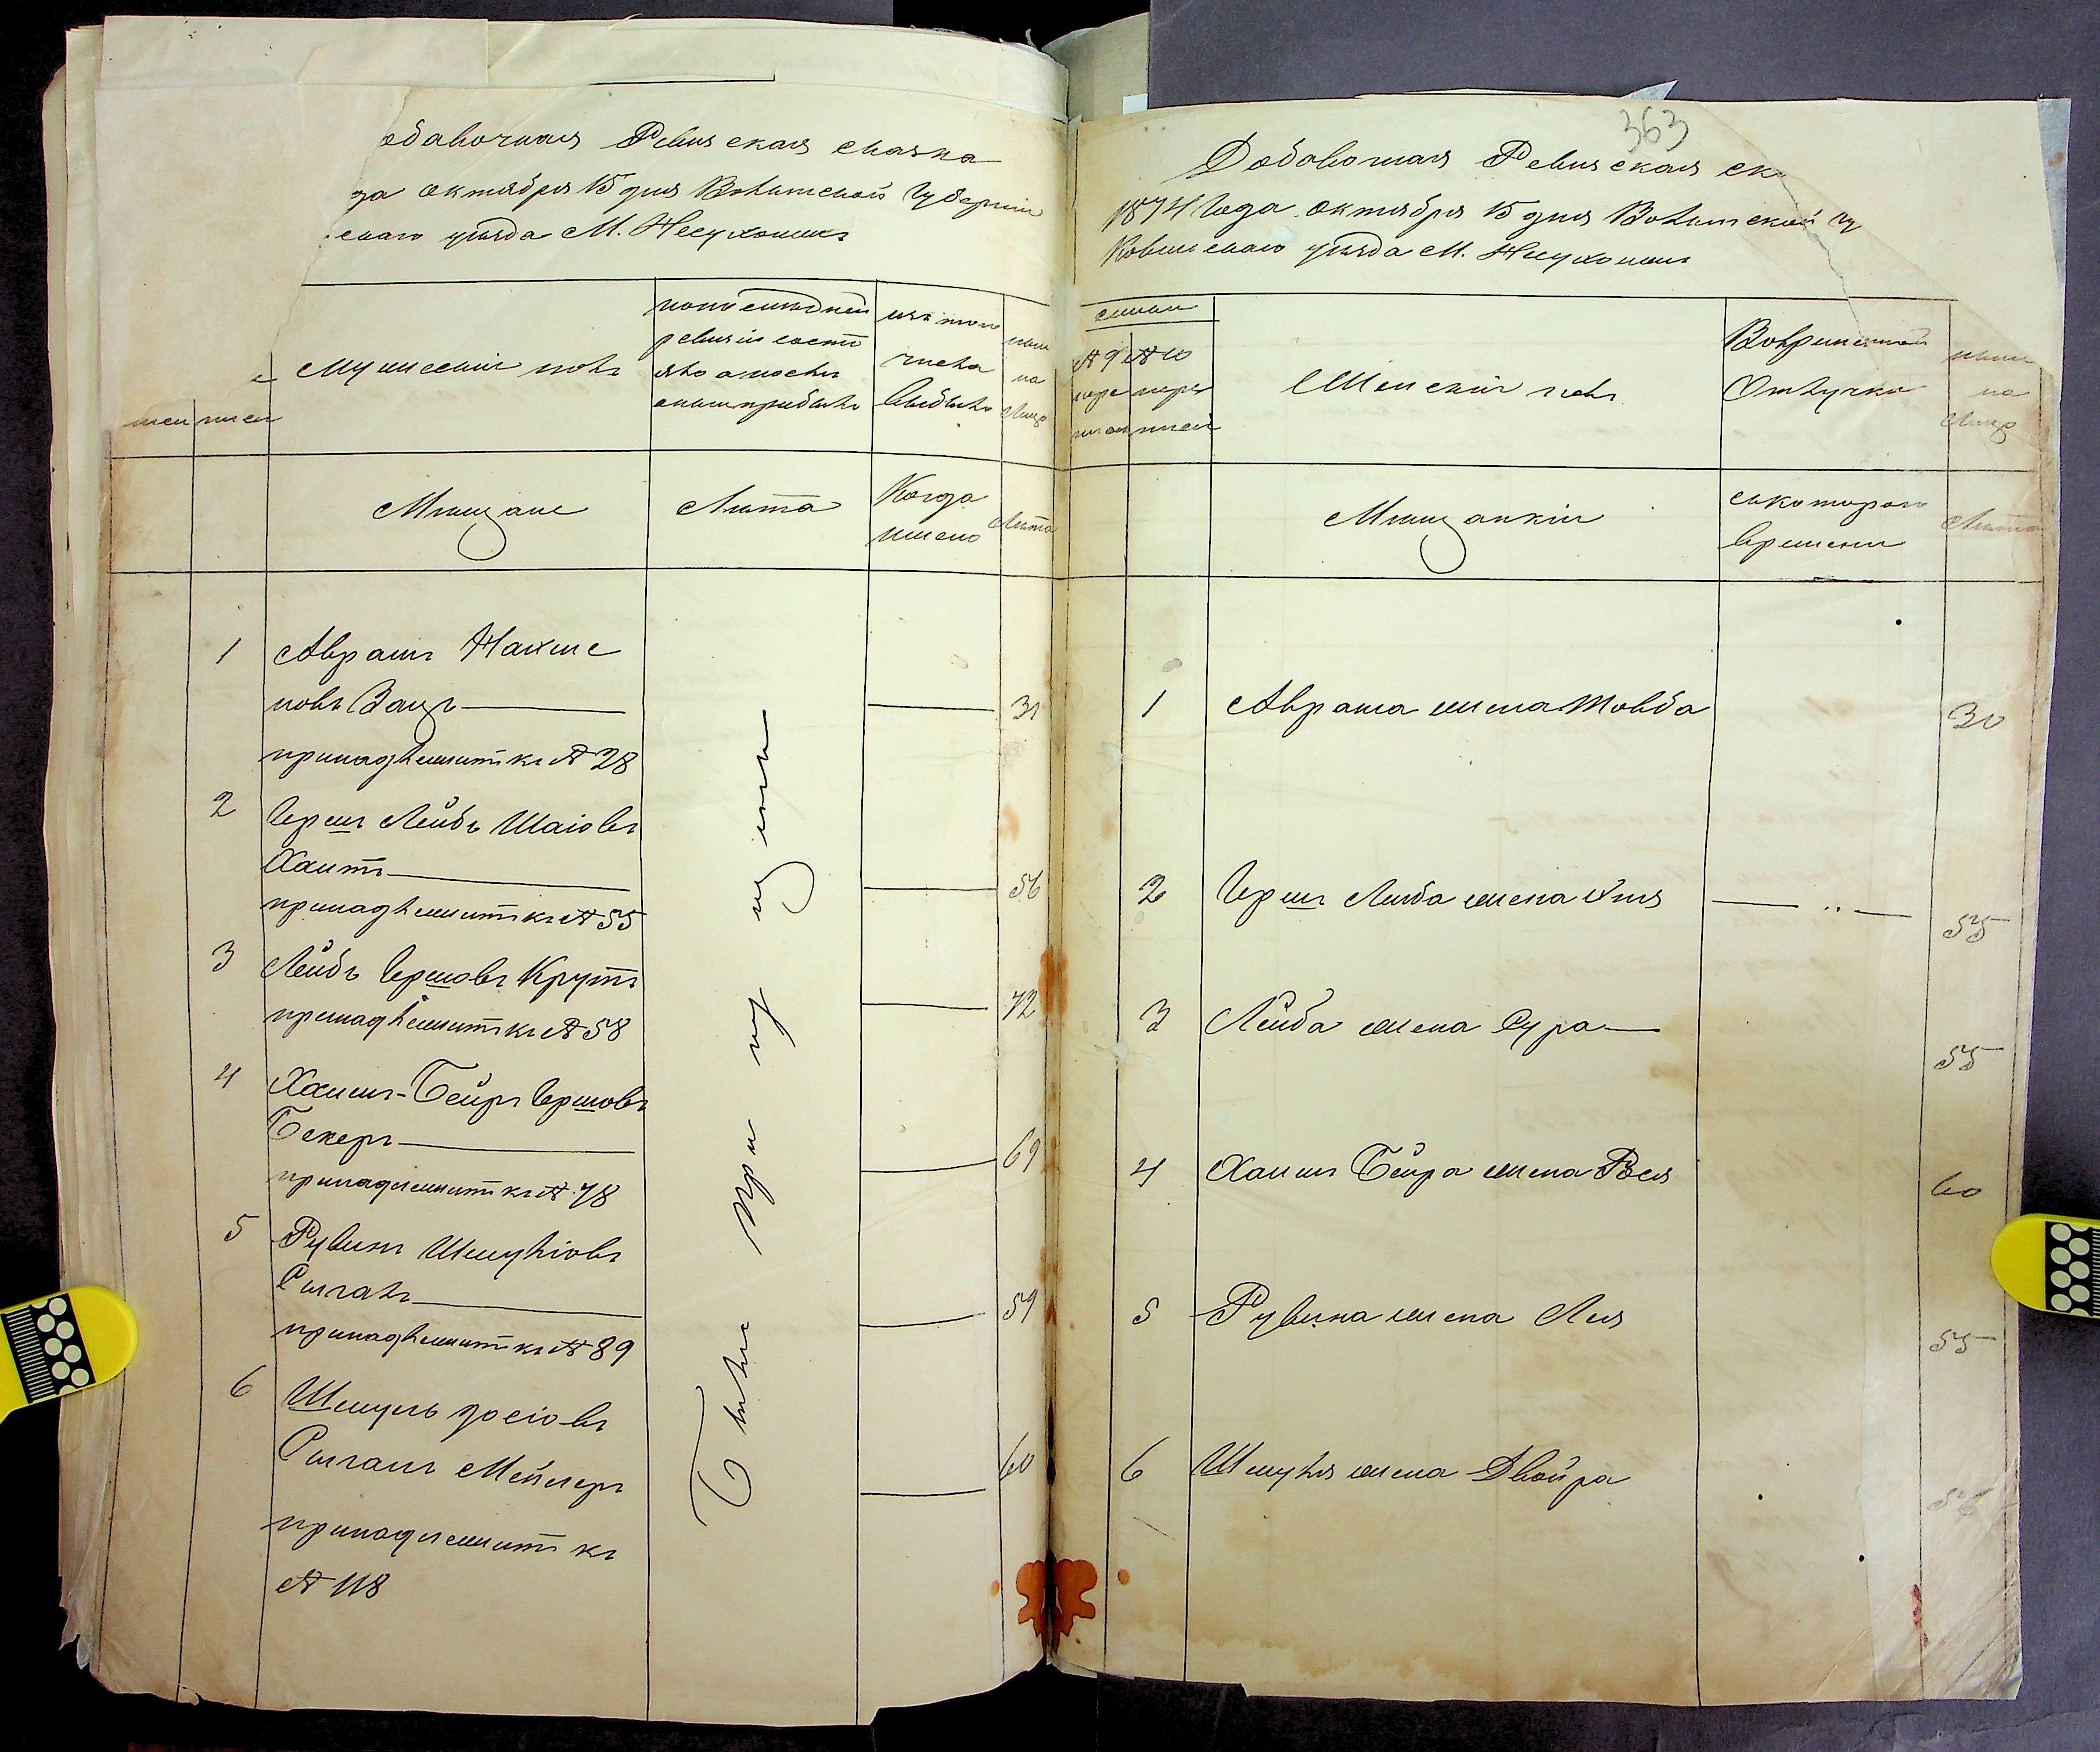 обавочная Ревизская сказка
да октября 15 дня Волынской Губерніи
скаго уѣзда М. Несухоижъ
Мужескій полъ
по последней
ревизіи состо
яло а после
оныи прибыло
изъ того
числа
выбыло
ныне
на
лицо
Мѣщане
Лѣта
Когда
имено
Лѣта
1 Аврамъ Нахме
новъ Зацъ
31
принадлежитъ къ № 28
2 Герш Лейбъ Шаіовъ
Хаитъ
56
принадлежитъ къ № 55
3 Лейбъ Гершовъ Крутъ
72
принадлежитъ къ № 58
4 Хаимъ-Бейръ Гершовъ
Бекеръ
69
принадлежитъ къ № 78
5 Рувинъ Шмуліовъ
59
принадлежитъ къ № 89
6 Шмуль Іосіовъ
Мейлеръ
60
принадлежитъ къ
№ 118
363
Добавочная Ревизская ск
1874 Года октября 15 дня Волынской Гу
Ковельскаго уѣзда М. Несухоижъ
семьи
№ 9 № 10
пере пере
писи писи
Женскій полъ
Вовременной
Отлучки
ныне
на
лицо
Мѣщанкіи
съ котораго
времени
Лѣта
1 Аврама жена Товба
30
2 Герш Лейба жена Хая
55
3 Лейба жена Сура
55
4 Хаим Бейра жена Рея
60
5 Рувина жена Лея
55
6 Шмуля жена Двойра
56